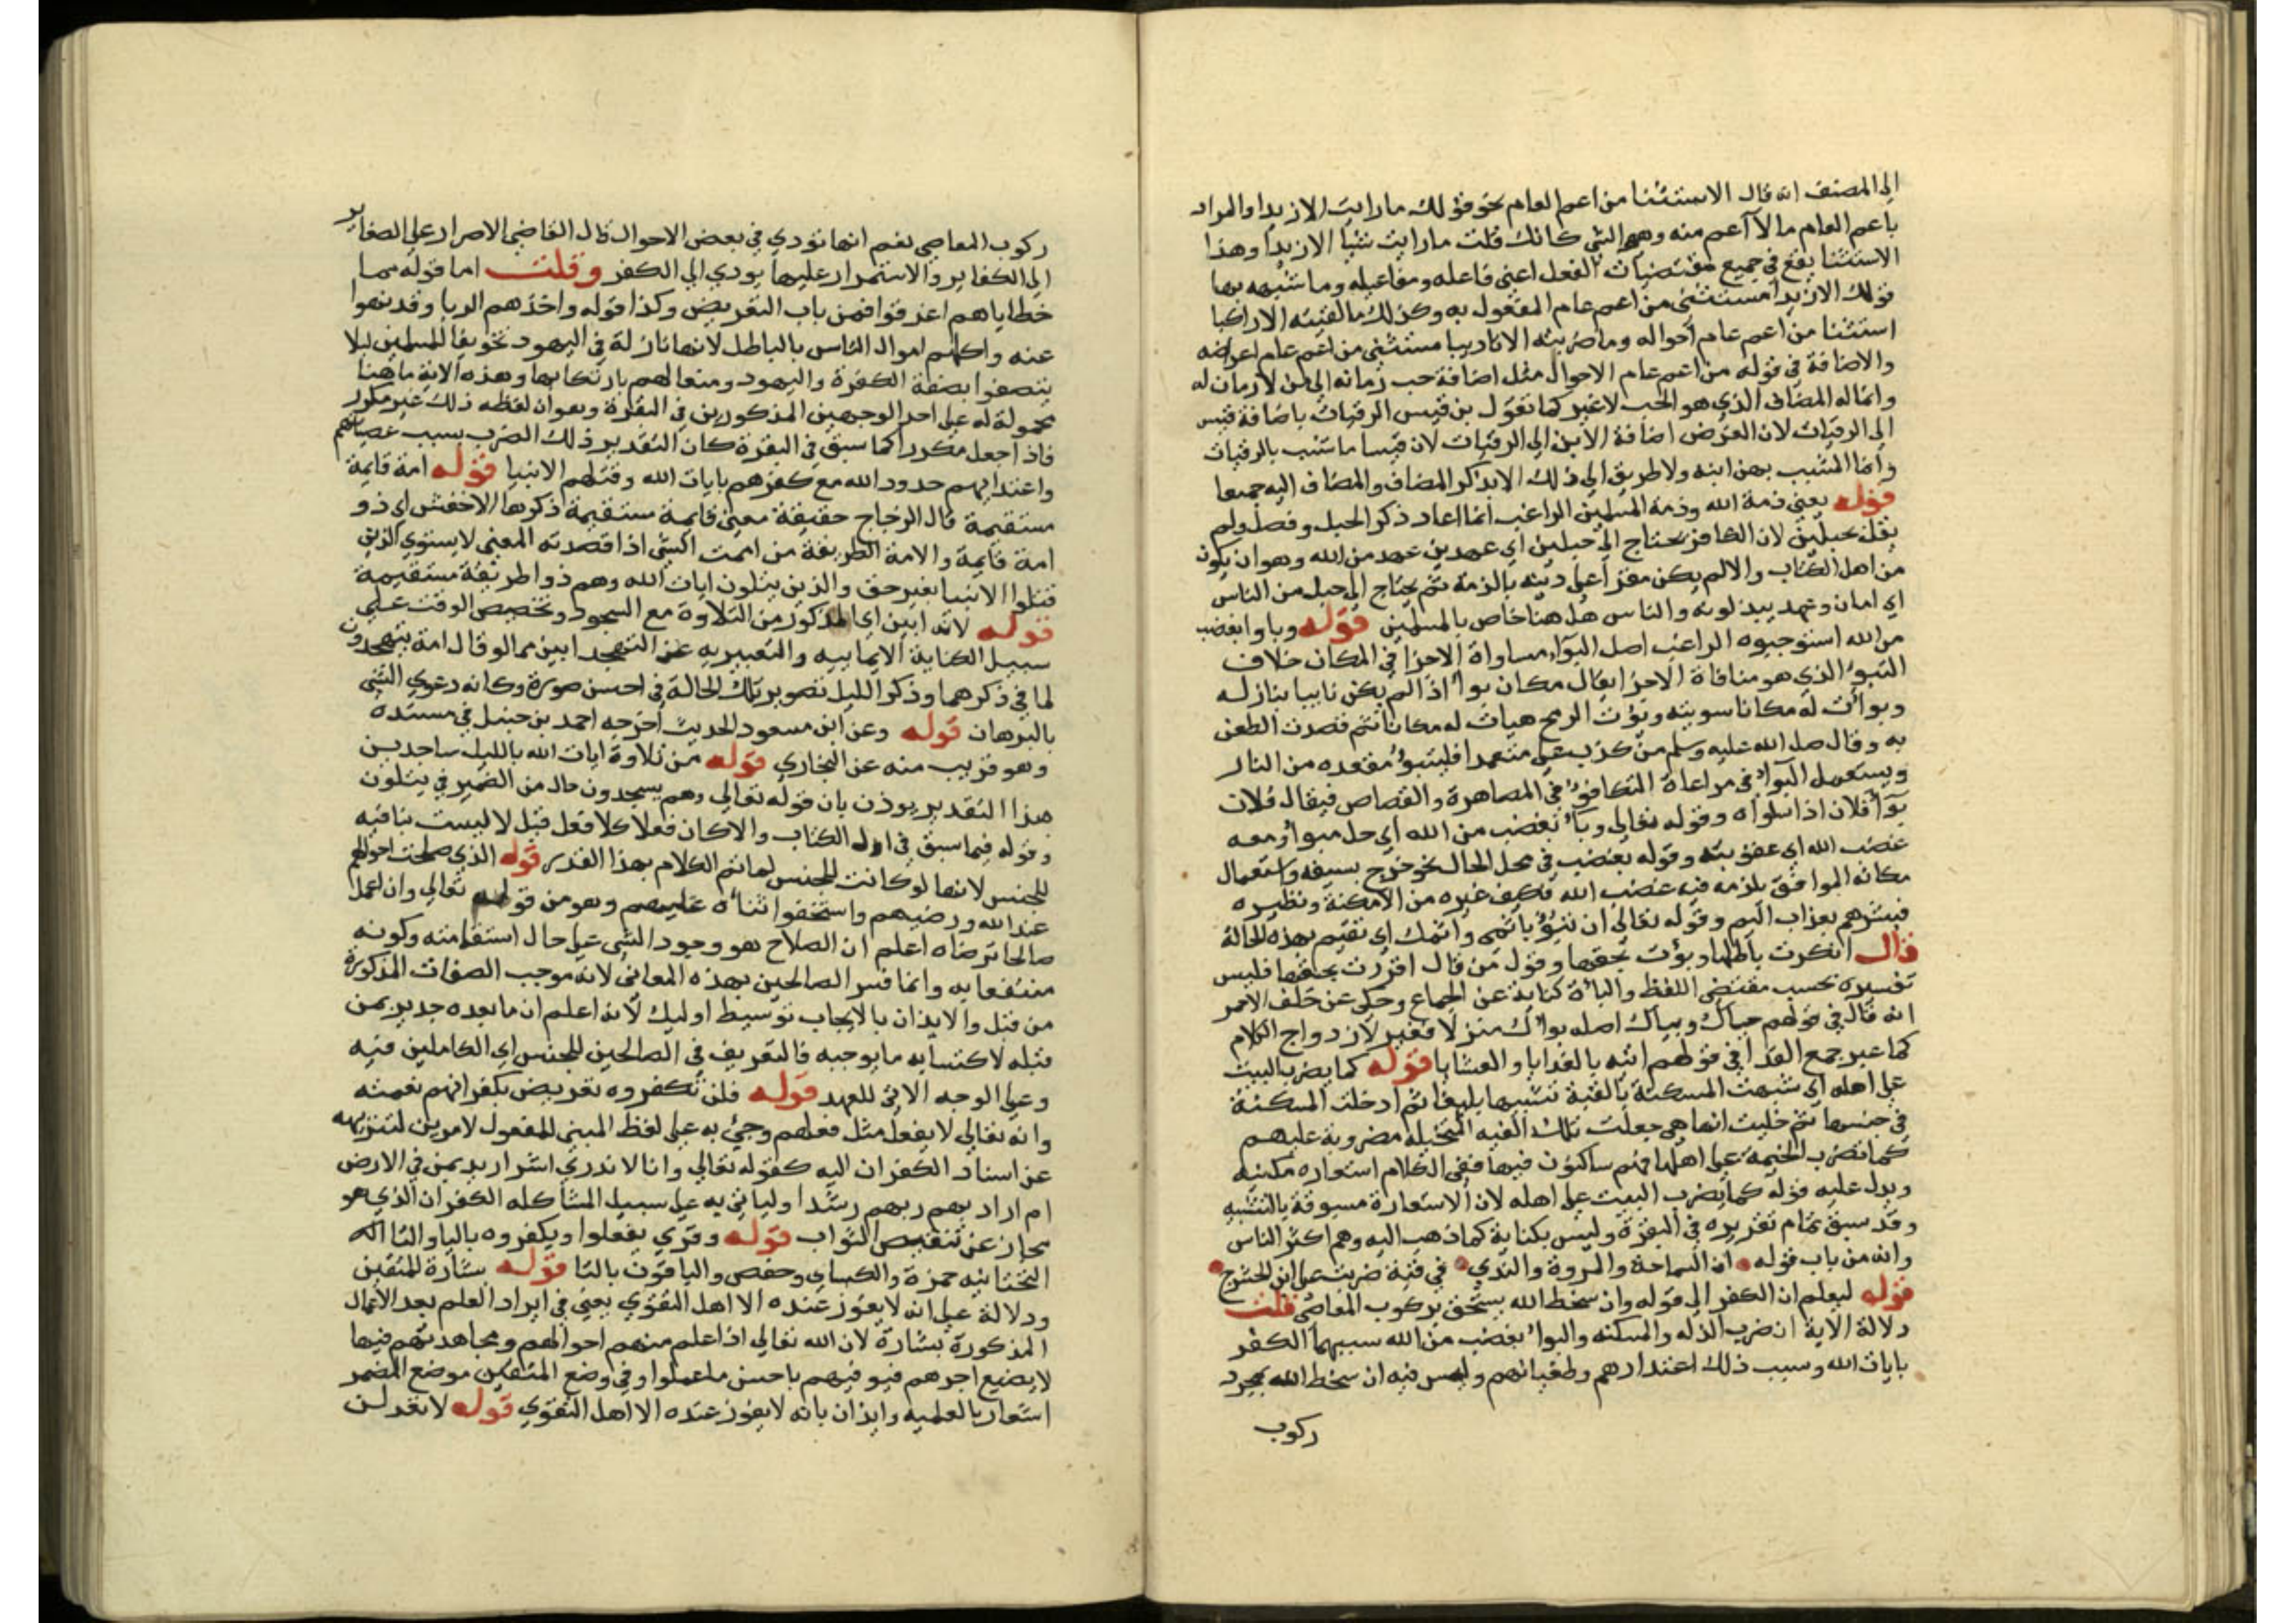 الى المصنف انه قال الاستثنا من اعم العام نحو قولك ما رايت الا زيدا والمراد
باعم العام ما لا اعم منه وهو الشي كانك قلت ما رايت شيا الا زيدا وهذا
الاستثنا يقع في جميع مقتضيات الفعل اعني فاعله ومفاعيله وما شبه بها
قولك الا زيدا مستثنى من اعم عام المفعول به وكذلك ما لقيته الا راكبا
استثنا من اعم عام احواله وما ضربته الا تاديبا مستثنى من اعم عام اعراضه
والاضافة في قوله من اعم عام الاحوال مثل اضافة حب رمانه الى من لا رمان له
وانما له المضاف الذي هو الحب لا غير كما تقول بن قيس الرقيات باضافة قيس
الى الرقيات لان الغرض اضافة الابن الى الرقيات لان قيسا ما شبب بالرقيات
وانما المشبب بهن ابنه ولا طريق الى ذلك الا بذكر المضاف والمضاف اليه جميعا
قوله يعني ذمة الله وذمة المسلمين الراغب انما اعاد ذكر الحبل وفصل ولم
يقل بحبلين لان الكافر يحتاج الى حبلين اي عهدين عهد من الله وهو ان يكون
من اهل الكتاب والا لم يكن مقرا على دينه بالذمة ثم يحتاج الى حبل من الناس
اي امان وعهد يبذلونه والناس هاهنا خاص بالمسلمين قوله وباوا بغضب
من الله استوجبوه الراغب اصل البواء مساواة الاجزا في المكان خلاف
النبو الذي هو منافاة الاجزا يقال مكان بواء اذا لم يكن نابيا بنازله
وبوأت له مكانا سويته وبؤت الرمح هيات له مكانا ثم قصدت الطعن
به وقال صلى الله عليه وسلم من كذب علي متعمدا فليتبوأ مقعده من النار
ويستعمل البواء في مراعاة التكافؤ في المصاهرة والقصاص فيقال فلان
بوأ فلان اذا ساواه وقوله تعالى وباء بغضب من الله اي حل مبوأ ومعه
غضب الله اي عقوبته وقوله بغضب في محل الحال نحو خرج بسيفه واستعمال
مكانه الموافق يلزمه فيه غضب الله فكيف غيره من الامكنة ونظيره
فبشرهم بعذاب اليم وقوله تعالى ان تبوء باثمي واثمك اي تقيم بهذه الحالة
قال انكرت باطلها وبؤت بحقها وقول من قال اقررت بحقها فليس
تفسيره بحسب مقتضى اللفظ والباءة كناية عن الجماع وحكي عن خلف الاحمر
انه قال في قولهم حياك وبياك اصله بوأك منزلا فغير لازدواج الكلام
كما عبر جمع الغداة في قولهم اتيه بالغدايا والعشايا قوله كما يضرب البيت
على اهله اي شبهت المسكنة بالقبة تشبيها بليغا ثم ادخلت المسكنة
في جنسها ثم خليت انها هي جعلت تلك القبه المتخيلة مضروبة عليهم
كما تضرب الخيمة على اهلها فهم ساكنون فيها ففي الكلام استعاره مكنيه
ويدل عليه قوله كما يضرب البيت على اهله لان الاستعارة مسبوقة بالتشبيه
وقد سبق تمام تقريره في البقرة وليس بكناية كما ذهب اليه وهم اكثر الناس
وانه من باب قوله ان السماحة والمروة والندي في قبة ضربت على ابن الحشرج
قوله ليعلم ان الكفر الى قوله وان سخط الله يستحق بركوب المعاصي قلت
دلالة الاية ان ضرب الذله والمسكنه والبواء بغضب من الله سببها الكفر
بايات الله وسبب ذلك اعتداءهم وطغيانهم وليس فيه ان سخط الله بمجرد
ركوب
ركوب المعاصي نعم انها تودي في بعض الاحوال قال القاضي الاصرار على الصغاير
الى الكفاير والاستمرار عليها يودي الى الكفر وقلت اما قوله مما
خطاياهم اغرقوا فمن باب التعريض وكذا قوله واخذهم الربا وقد نهوا
عنه واكلهم اموال الناس بالباطل لانها نازلة في اليهود تخويفا للمسلمين ليلا
يتصفوا بصفة الكفرة واليهود ومنعا لهم بارتكابها وهذه الاية ماهنا
محمولة له على احد الوجهين المذكورين في البقرة وهو ان لفظه ذلك غير مكرر
فاذا جعل مكررا كما سبق في البقرة كان التقدير ذلك الضرب بسبب عصيانهم
واعتدايهم حدود الله مع كفرهم بايات الله وقتلهم الانبيا قوله امة قايمة
مستقيمة قال الزجاج حقيقة معنى قايمة مستقيمة ذكرها الاخفش اي ذو
امة قايمة والامة الطريقة من اممت الشي اذا قصدته المعنى لا يستوي الذين
قتلوا الانبيا بغير حق والذين يتلون ايات الله وهم ذوا طريقة مستقيمة
قوله لانه ابين اي المذكور من التلاوة مع السجود وتخصيص الوقت على
سبيل الكناية الايمابيه والتعبير به عن التهجد ابين مما لو قال امة يتهجدون
لما في ذكرهما وذكر الليل تصوير تلك الحالة في احسن صورة وكانه دعوى الشي
بالبرهان قوله وعن ابن مسعود الحديث اخرجه احمد بن حنبل في مسنده
وهو قريب منه عن البخاري قوله من تلاوة ايات الله بالليل ساجدين
هذا التقدير يوذن بان قوله تعالى وهم يسجدون حال من الضمير في يتلون
وقوله فيما سبق في اول الكتاب والا كان فعلا كلا فعل قبل لا ليست نافيه
للجنس لانها لو كانت للجنس لما تم الكلام بهذا القدر قوله الذي صلحت احوالهم
عند الله ورضيهم واستحقوا ثناه عليهم وهو من قوله تعالى وان اعمل
صالحا ترضاه اعلم ان الصلاح هو وجود الشي على حال استقامته وكونه
منتفعا به وانما فسر الصالحين بهذه المعاني لانه موجب الصفات المذكورة
من قبل والايذان بالايجاب توسيط اوليك لانه اعلم ان ما بعده جدير بمن
قبله لاكتسابه ما يوجبه فالتعريف في الصالحين للجنس اي الكاملين فيه
وعلى الوجه الاتي للعهد قوله فلن تكفروه تعريض بكفرانهم نعمته
وانه تعالى لا يفعل مثل فعلهم وجيء به على لفظ المبني للمفعول لامرين لتنزيهه
عن اسناد الكفران اليه كقوله تعالى وانا لا ندري اشر اريد بمن في الارض
ام اراد بهم ربهم رشدا ولياتي به على سبيل المشاكله الكفران الذي هو
مجاز عن تنقيص الثواب قوله وقري يفعلوا ويكفروه باليا والتا اله
التحتانيه حمزة والكساي وحفص والباقون بالتا قوله بشارة للمتقين
ودلالة على انه لا يفوز عنده الا اهل التقوي يعني في ايراد العلم بعد الاعمال
المذكورة بشارة لان الله تعالى اذا علم منهم احوالهم ومجاهدتهم فيها
لا يضيع اجرهم فيوفيهم باحسن ما عملوا وفي وضع المتقين موضع المضمر
اشعار بالعلميه وايذان بانه لا يفوز عنده الا اهل التقوي قوله لا تغرلن